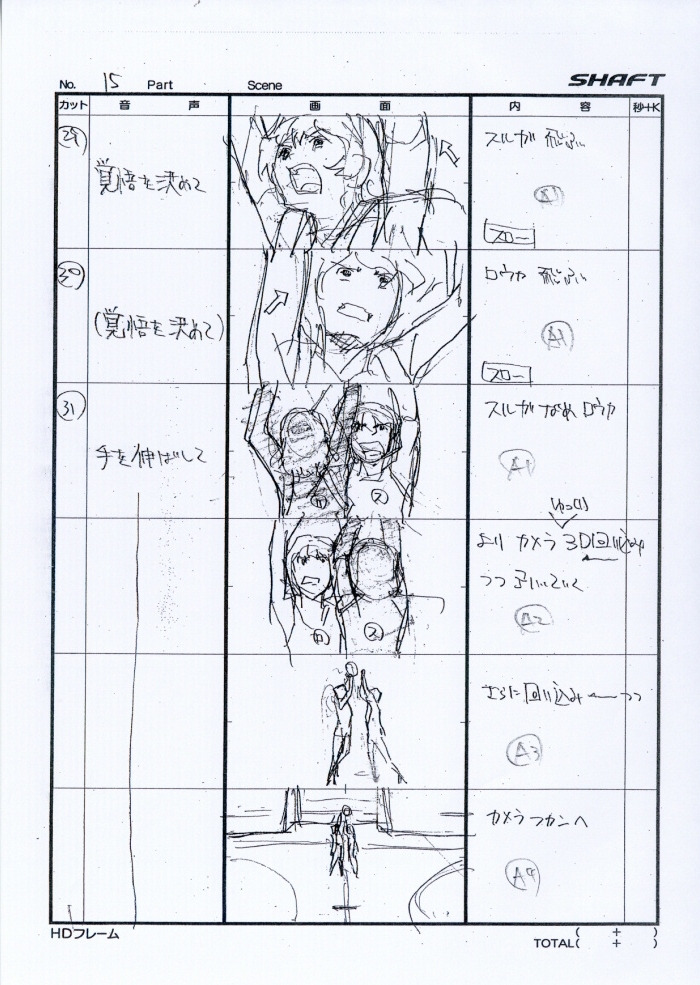 No. 15 Part Scene SHAFT
カット 音声 画面 内容 秒+K
29
覚悟を決めて
スルガ 飛ぶ
A1
スロー
30
(覚悟を決めて)
ロウカ 飛ぶ
A1
スロー
31
手を伸ばして
ロ ス
スルガ なめ ロウカ
A1
ゆっくり
ロ ス
より カメラ 3D回り込み
つつ 引いていく
A2
さらに 回り込み つつ
A3
カメラ フカンへ
A4
HDフレーム
TOTAL( + )
( + )